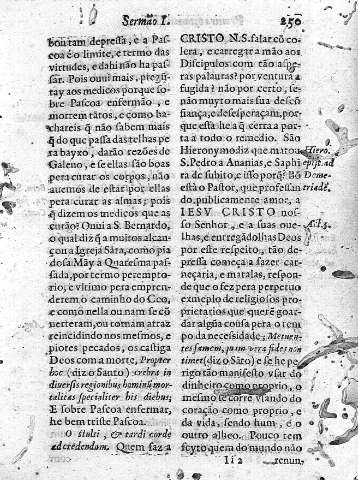 Sermão I. 250
bou tam depressa, e a Pas
coa é o limite, e termo das
virtudes, e dahi não ha pas
sar. Pois ouui mais, pregũ
tay aos medicos porque so-
bre Pascoa enfermão, e
mortem tãtos, e como ba-
chareis q̃ não sabem mais
q̃ do que passa das telhas pe
ra bayxo, darão rezões do
Galeno, e se ellas são boas
pera curar os corpos, não
auemos de estar por ellas
pera curar as almas; pois
q̃ dizem os medicos que as
curão? Ouui a S. Bernardo,
o qual diz q̃ muitos alcan-
çou a Igreja Sãta, como pia
dosa Mãy a Quaresma pas
sada, por termo peremp to-
rio, e vltimo pera emprẽn-
derem o caminho do Ceo,
e como nella ou nam se cõ
uerteram, ou tornam atraz
reincidindo nos mesmos, e
piores pecados, os castiga
Deos com a morte, Propter
hoc (diz o Santo) crebra in
diuersis regionibus hominũ mor-
talitas specialiter his diebus;
E sobre Pascoa enfermar,
he bem triste Pascoa.
O stulti, & tardi corde
ad credendum. Quem faz a
CRISTO N.S. falar cõ co
lera, e carregar a mão aos
Discipulos com tão aspe-
ras palauras? por ventura a
fugida? não por certo, se-
não muyto mais sua descõ
fiança, de desesperaçam, por
que esta lhe tira q̃ cerra a por
ta a todo o remedio. São
Hieronymo diz que matou
S. Pedro a Ananias, e Saphi
ra de subito, e isso porq̃? Bõ
està o Pastor, que professan
do, publicamente amor, a
IESV CRISTO nos-
so Senhor, e a suas oue-
lhas, e entregãdolhas Deos
por este respeito, tão de-
pressa começa a fazer car-
neçaria, e matalas, respon-
de que o fez pera perpetuo
exemplo de religiosos pro-
prietarios que querẽ goar-
dar algũa cousa pera o tem
po da necessidade: Metuen-
tes famem, quam vera fides non
timet (diz o Sãto) e se he pe
rigo tão manifesto viuar do
dinheiro como proprio, o
mesmo se corre vsando do
coração como proprio, e
da vida, sendo hum, e o
outro alheo. Pouco tem
feyto quem do mundo não
Hiero.
epist. ad
Deme-
triadẽ.
Act. 5.
Ii 2 renun-